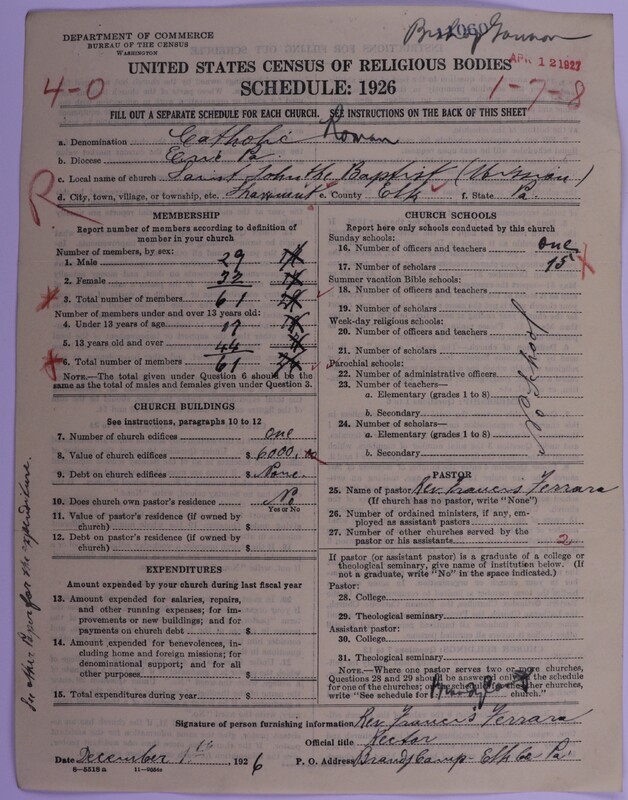 DEPARTMENT OF COMMERCE
BUREAU OF THE CENSUS
WASHINGTON
Bishop Gannon
APR 12 1927
UNITED STATES CENSUS OF RELIGIOUS BODIES
4-0 SCHEDULE: 1926 1-7-8
FILL OUT A SEPARATE SCHEDULE FOR EACH CHURCH. SEE INSTRUCTIONS ON THE BACK OF THIS SHEET
a. Denomination Catholic Roman
b. Diocese Erie Pa.
c. Local name of church Saint John the Baptist (Mission)
d. City, town, village, or township, etc. e. County Elk f. State Pa.
R
MEMBERSHIP
Report number of members according to definition of
member in your church
Number of members, by sex:
1. Male 29
2. Female 32
3. Total number of members 61
Number of members under and over 13 years old:
4. Under 13 years of age 17
5. 13 years old and over 44
6. Total number of members 61
NOTE.—The total given under Question 6 should be the
same as the total of males and females given under Question 3.
CHURCH BUILDINGS
See instructions, paragraphs 10 to 12
7. Number of church edifices one
8. Value of church edifices $ 6000.00
9. Debt on church edifices $ None.
10. Does church own pastor's residence No
Yes or No
11. Value of pastor's residence (if owned by
church) $
12. Debt on pastor's residence (if owned by
church) $
EXPENDITURES
Amount expended by your church during last fiscal year
13. Amount expended for salaries, repairs,
and other running expenses; for im-
provements or new buildings; and for
payments on church debt $
14. Amount expended for benevolences, in-
cluding home and foreign missions; for
denominational support; and for all
other purposes $
15. Total expenditures during year $
In other Paper for the expenditure.
CHURCH SCHOOLS
Report here only schools conducted by this church
Sunday schools:
16. Number of officers and teachers one
17. Number of scholars 15
Summer vacation Bible schools:
18. Number of officers and teachers
19. Number of scholars
Week-day religious schools:
20. Number of officers and teachers
21. Number of scholars
Parochial schools:
22. Number of administrative officers
23. Number of teachers—
a. Elementary (grades 1 to 8)
b. Secondary
24. Number of scholars—
a. Elementary (grades 1 to 8)
b. Secondary
No School
PASTOR
25. Name of pastor Rev. Francis Ferrara
(If church has no pastor, write "None")
26. Number of ordained ministers, if any, em-
ployed as assistant pastors
27. Number of other churches served by the
pastor or his assistants 2
If pastor (or assistant pastor) is a graduate of a college or
theological seminary, give name of institution below. (If
not a graduate, write "No" in the space indicated.)
Pastor:
28. College
29. Theological seminary
Assistant pastor:
30. College
31. Theological seminary
NOTE.—Where one pastor serves two or more churches,
Questions 28 and 29 should be answered only on the schedule
for one of the churches; on the schedules for the other churches,
write "See schedule for church."
Signature of person furnishing information Rev. Francis Ferrara
Official title Rector
Date December 1st 1926 P. O. Address Brandy Camp - Elk Co. Pa.
8—5518 a